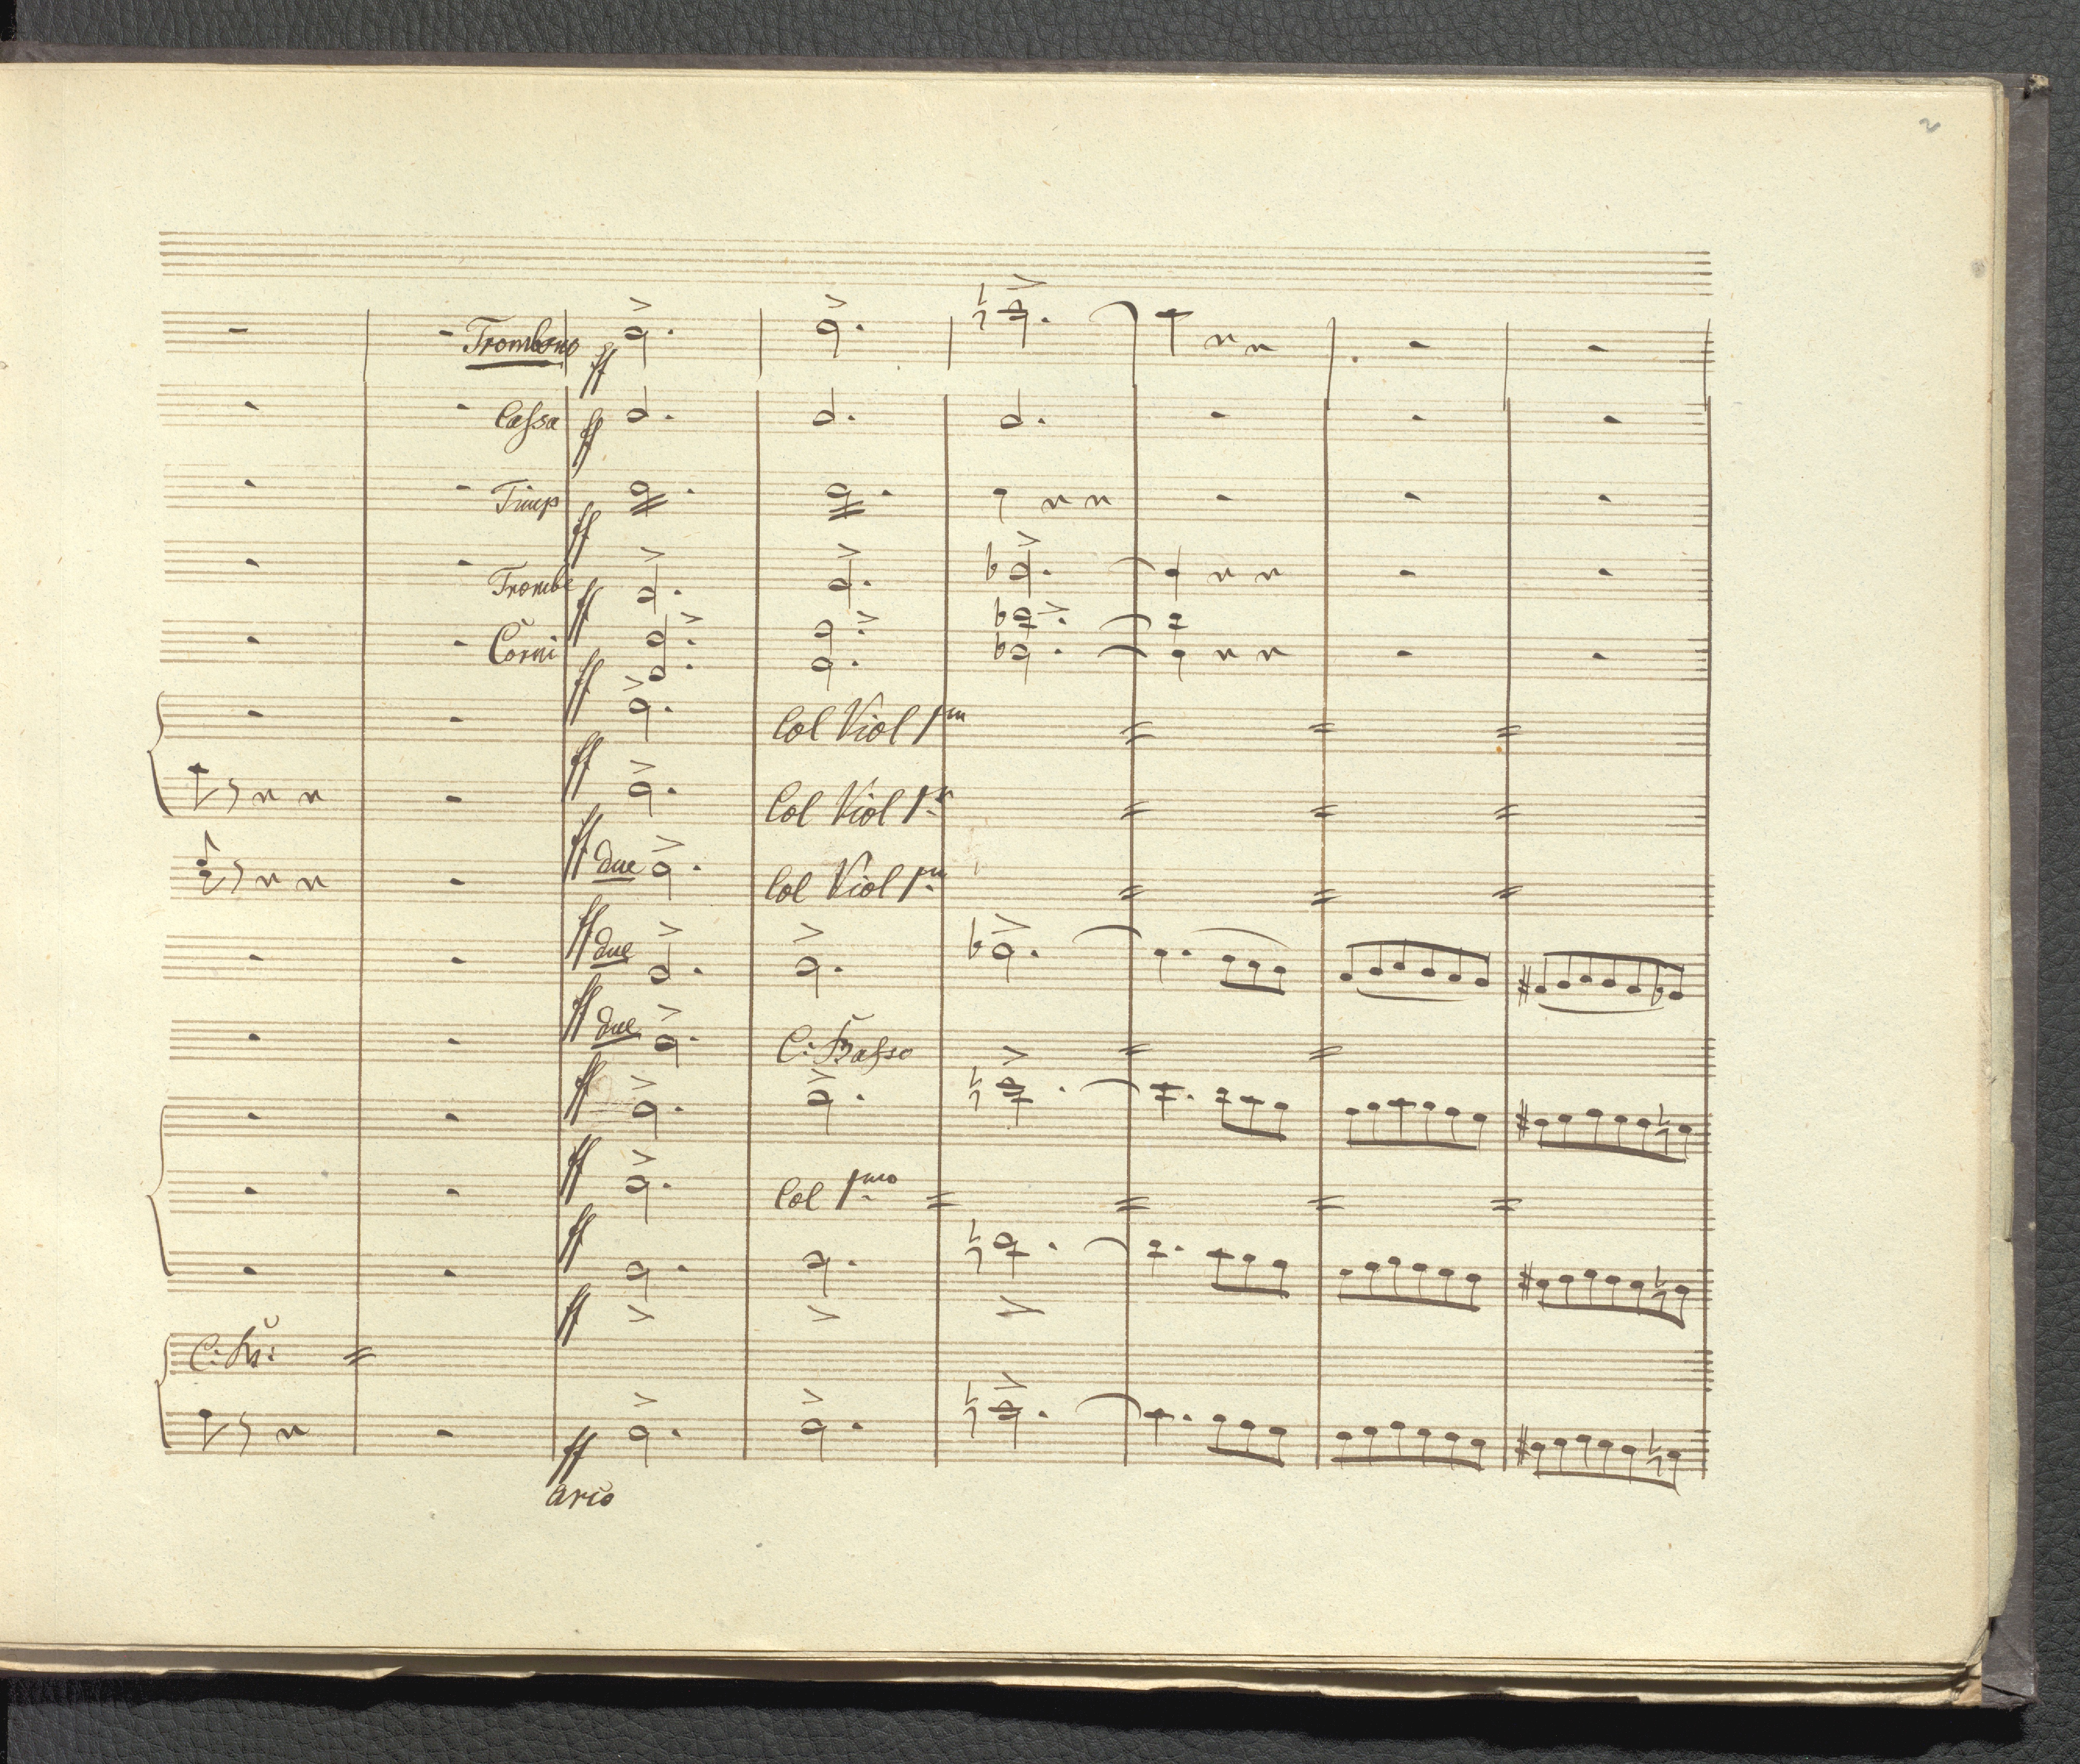 2
Trombono
ff
Cassa
ff
Timp
ff
Trombe
ff
Corni
ff
Col Viol 1m
ff
Col Viol 1
ff due
Col Viol 1m
ff due
ff due
C: Basso
ff
ff
Col 1mo
ff
ff
ff
arco